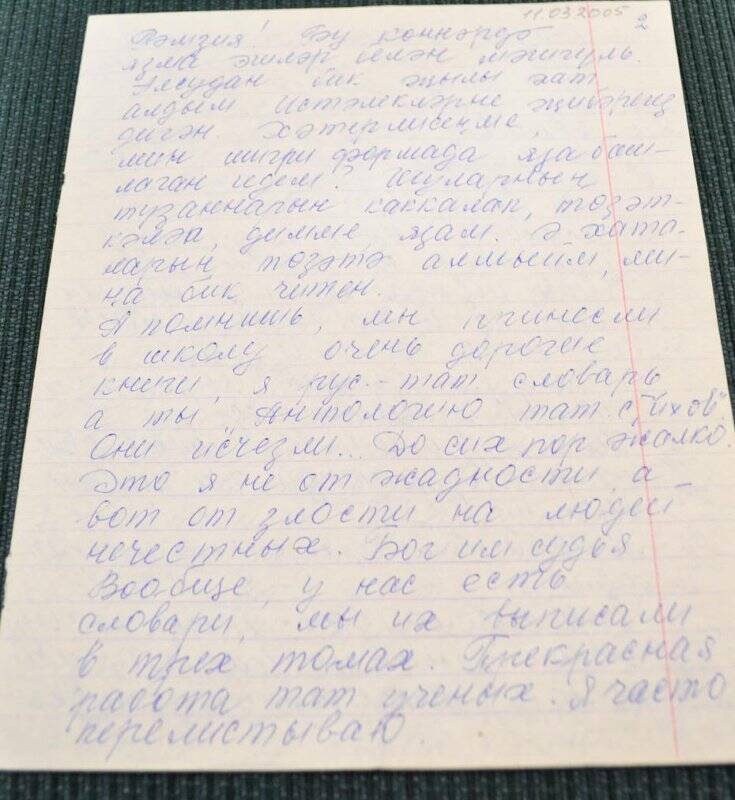 11.03.2005 2
Рәмзия! Бу көннәрдә
язма эшләр белән мәшгуль.
Элсудан бик җылы хат
алдым истәлекләрне җибәрең
дигән. Хәтерлисеңме,
мин шигри формада яза баш-
лаган идем? Шуларның
тузаннарын каккалап, төзәт-
кәләп, димме, язам. Ә хата-
ларын төзәтә алмыйм, ми-
ңа бик читен.
А помнишь, мы приносили
в школу очень дорогие
книги, я рус.-тат словарь
а ты „Антологию тат. стихов"
Они исчезли... До сих пор жалко.
Это я не от жадности, а
вот от злости на людей
нечестных. Бог им судья
Вообще, у нас есть
словари, мы их выписали
в трех томах. Прекрасная
работа тат ученых. Я часто
перелистываю.